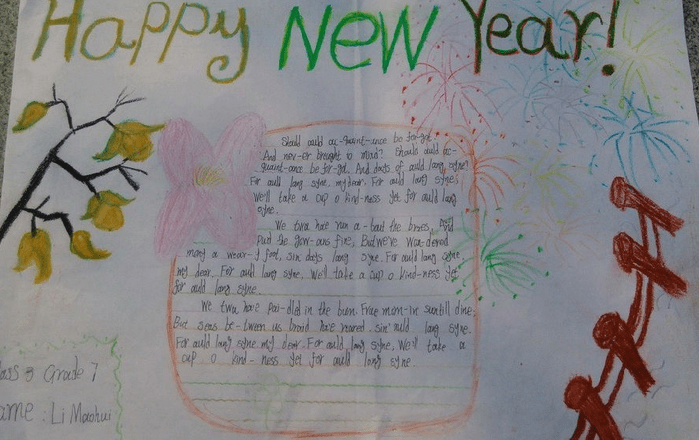 Happy New Year!
Should auld ac-quaint-ance be for-got
And nev-er brought to mind? Should auld ac-
quaint-ance be for-got, And days of auld lang syne?
For auld lang syne, my dear. For auld lang syne,
We'll take a cup o kind-ness yet for auld lang
syne.
We twa have run a-bout the braes, And
the gow-ans fine, But we've wan-dered
many a wear-y foot, sin days lang syne. For auld lang syne,
my dear. For auld lang syne. We'll take a cup o kind-ness yet
for auld lang syne.
We twa have pai-dled in the burn. Frae morn-in sun till dine.
But seas be-tween us braid have roared sin' auld lang syne.
For auld lang syne my dear. For auld lang syne, We'll take a
cup o kind-ness yet for auld lang syne
ass 3 Grade 7
ame: Li Maohui